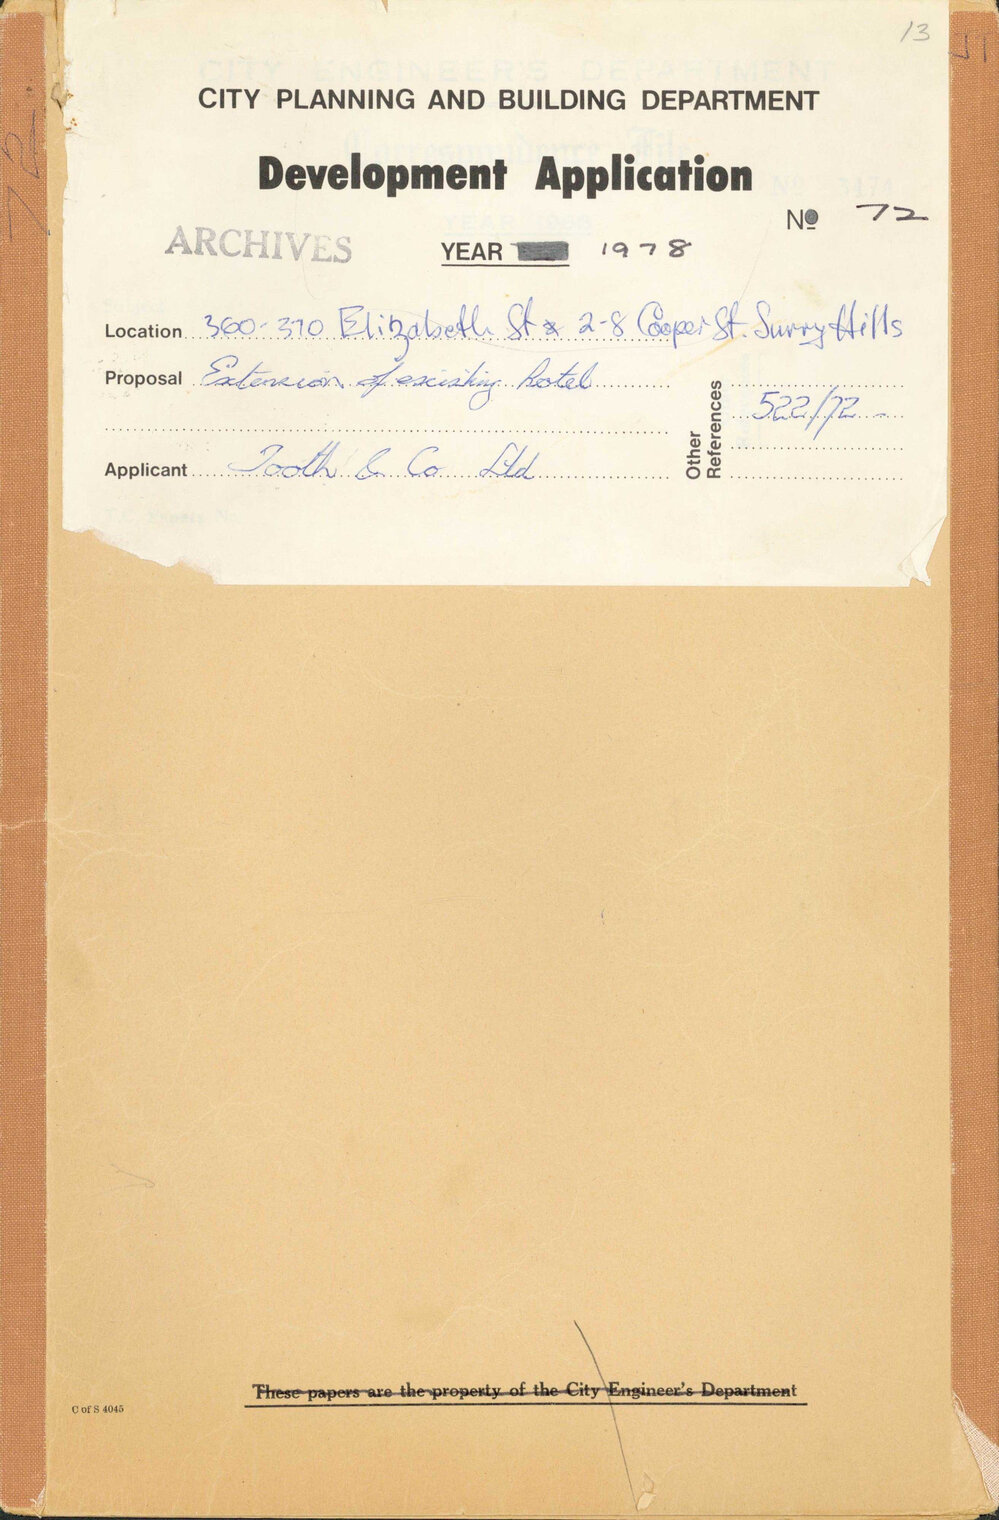 13
CITY PLANNING AND BUILDING DEPARTMENT
Development Application
Nº 72
ARCHIVES
YEAR 1978
Location 360-370 Elizabeth St & 2-8 Cooper St. Surry Hills
Proposal Extension of existing hotel
Other References 522/72 -
Applicant Tooth & Co Ltd
These papers are the property of the City Engineer's Department
C of S 4045
72